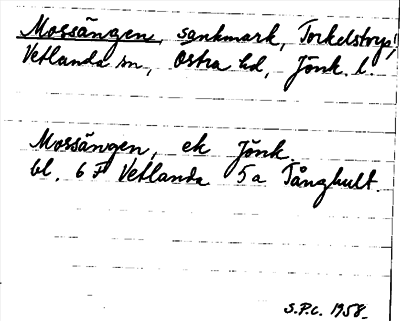 Mossängen, sankmark, Torkelstorp,
Vetlanda sn, Östra hd, Jönk. l.
Mossängen, ek Jönk.
bl. 6 F Vetlanda 5 a Tånghult.
S.P.C. 1958.